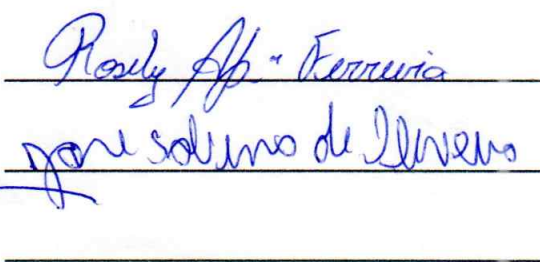 Rosely Ap.ª Ferreira
José Sabino de Oliveira